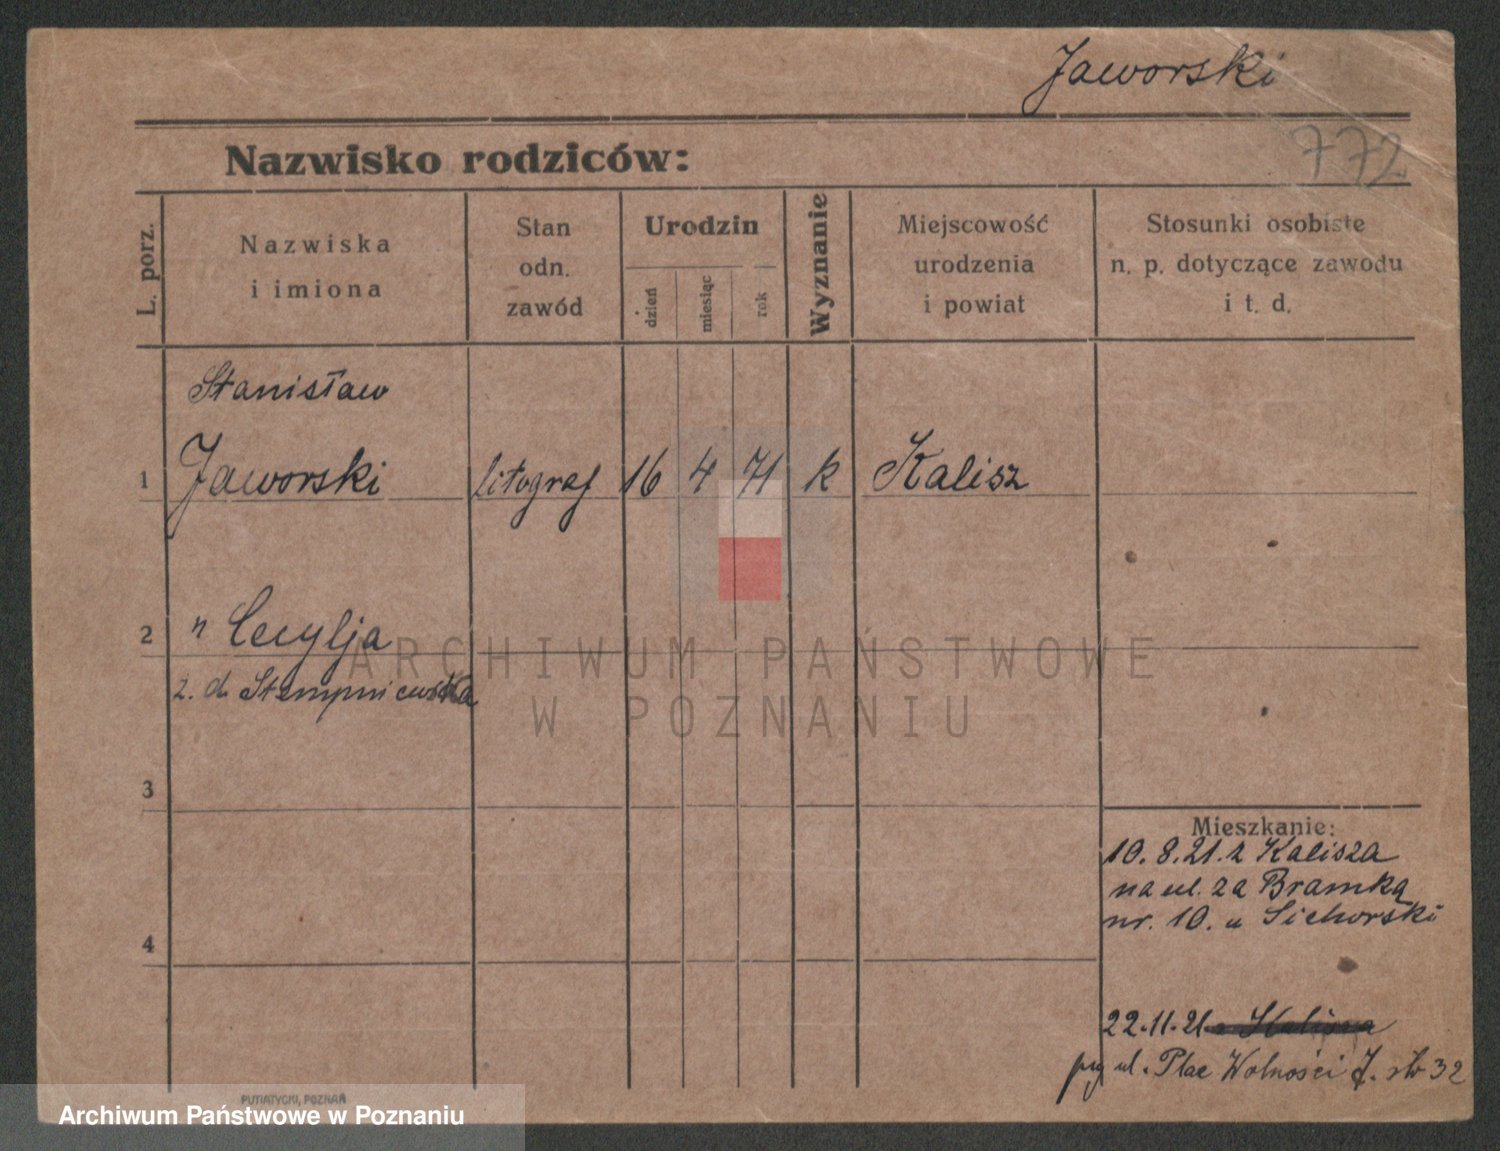 Jaworski
772
Nazwisko rodziców:
L. porz.
Nazwiska
i imiona
Stan
odn.
zawód
Urodzin
dzień
miesiąc
rok
Wyznanie
Miejscowość
urodzenia
i powiat
Stosunki osobiste
n. p. dotyczące zawodu
i t. d.
Stanisław
1 Jaworski litograf 16 4 71 k Kalisz
2 " Cecylja
z. d. Stempniewska
3
4
Mieszkanie:
10.8.21. z Kalisza
na ul. za Bramką
nr. 10. u Sichorski
22.11.21
przy ul. Plac Wolności 7.
32
ARCHIWUM PAŃSTWOWE
W POZNANIU
PUTIATYCKI, POZNAŃ
Archiwum Państwowe w Poznaniu